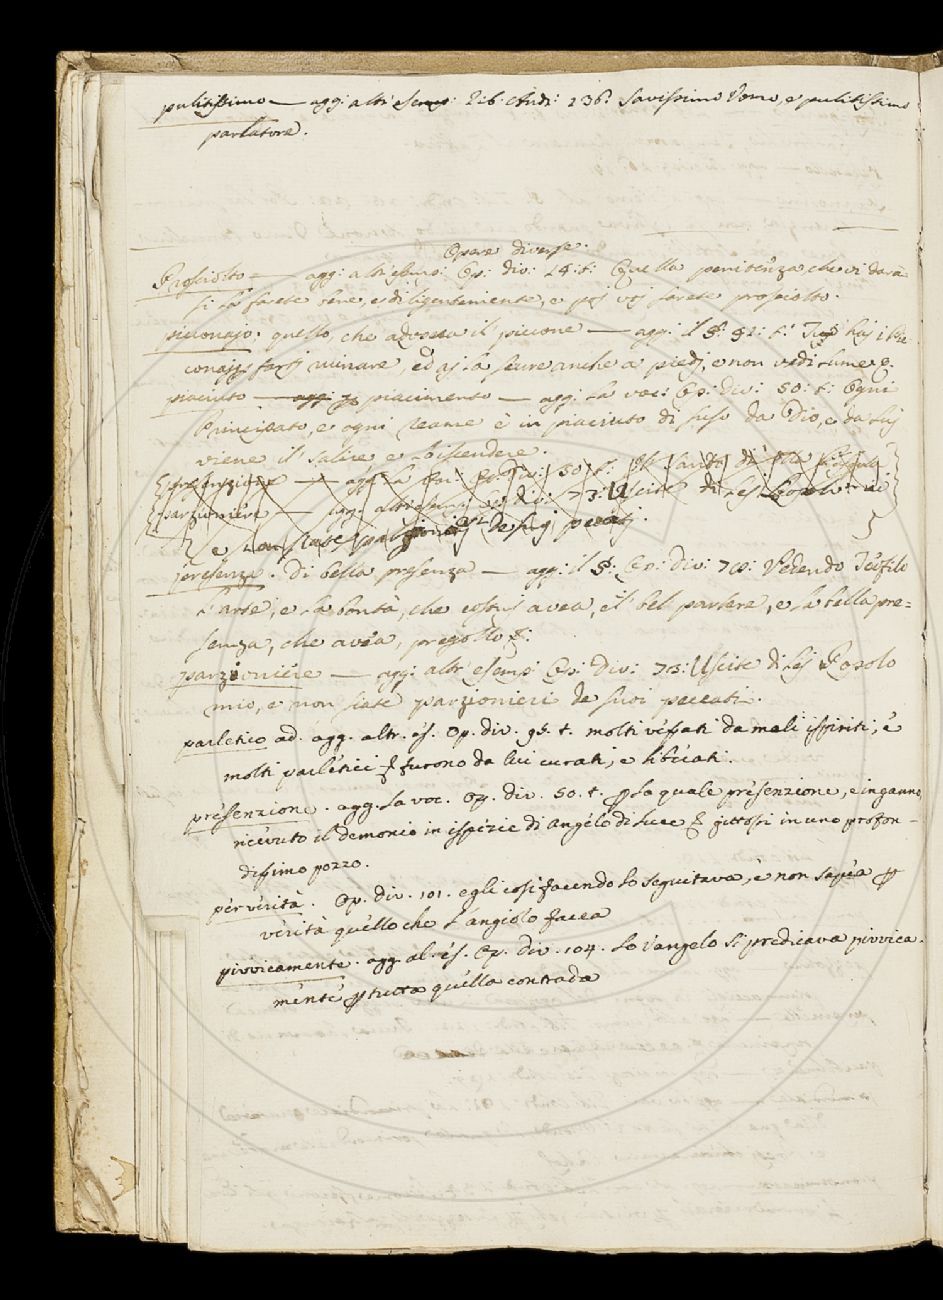 pulitissimo — agg: altr' esemp: Lib. Andr: 136: Savissimo Uomo, e pulitissimo
parlatore.
Opere diverse.
Prosciolto — agg: altr' esemp: Op: div: 24: t: Quella penitenza che vi darà
si la farete bene, e diligentemente, e poj voj sarete prosciolto.
picconajo; quello, che adopera il piccone — agg: il §: 52: t: haj i Pic
conajj fattj ruinare, ed aj la scure anche a' piedj, e non vedi lume &.
piaciuto — agg: piacimento — agg: la voc: Op: Div: 50: t: Ogni
Principato, e ogni reame è in piaciuto di suso da Dio, e da lui
viene il salire e discendere.
presenzione — agg: la voc: Op: Div: 50: t:
parzioniere — agg: altr' esemp: Op: div: 73: Uscite di lej Popolo mio
e non siate parzionierj de' suoj peccatj.
presenza. Di bella presenza — agg: il §: Op: Div: 70: Vedendo Teofilo
l'arte, e la bontà, che costuj avea, e 'l bel parlare, e la bella pre=
senza, che avéa, pregollo &:
parzioniére — agg: altr' esemp: Op: Div: 73: Uscite di lej Popolo
mio, e non siate parzionieri de' suoi peccati.
parletico ad. agg. altr. es. Op. div. 95. t. molti vessati da mali ispiriti, e
molti parletici & furono da lui curati, e liberati.
presenzione. agg. la voc. Op. div. 50. t. p la quale presenzione, e inganno,
ricevuto il demonio in ispezie di Angelo di luce & gittossi in uno profon-
dissimo pozzo.
per verità. Op. div. 101. egli così facendo lo seguitava, e non sapea p
verità quello che l'angiolo facea
pivvicamente. agg. al. es. Op. div. 104. lo vangelo si predicava pivvica.
mente p tutta quella contrada